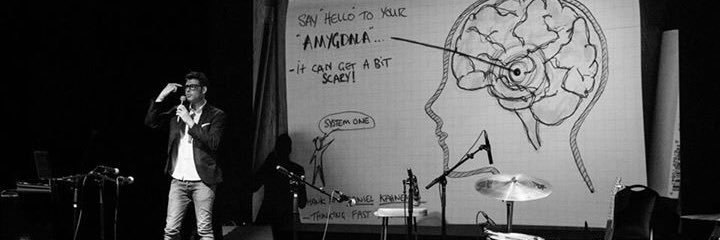 SAY "HELLO" TO YOUR
"AMYGDALA"...
- IT CAN GET A BIT
SCARY!
SYSTEM ONE
DANIEL KAHNE
- THINKING FAST